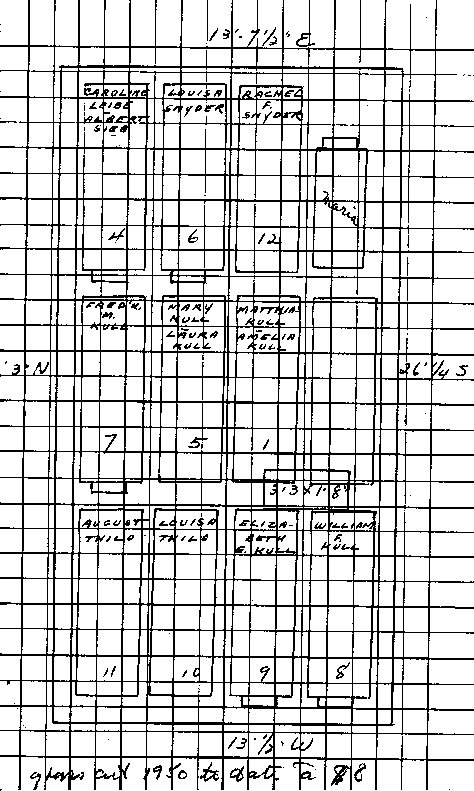 13'-7 1/2" E
CAROLINE
LEIBE
ALBERT
SIEB
4
LOUISA
SNYDER
6
RACHEL
F.
SNYDER
12
Maria
FRED'K.
M.
KULL
7
MARY
KULL
LAURA
KULL
5
MATTHIA
KULL
AMELIA
KULL
1
3" N
26' 1/4 S
3'3 x 1'8"
AUGUST
THILO
11
LOUISA
THILO
10
ELIZA-
BETH
E. KULL
9
WILLIAM
F.
KULL
8
13' 1/2" W
1950 to date a $8